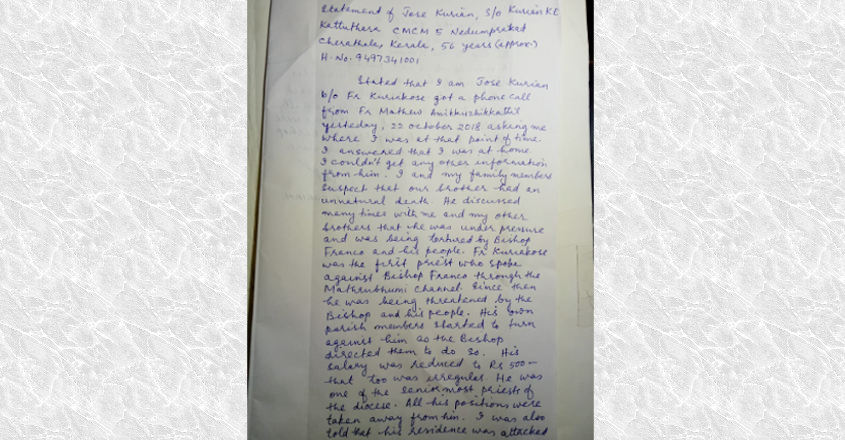 Statement of Jose Kurian, S/o Kurian K.C
Kattuthara CMCM 5 Nedumprakad
Cherathala, Kerala, 56 years (approx.)
H. No. 9497341001
Stated that I am Jose Kurian
b/o Fr Kuriakose got a phone call
from Fr Mathew
yesteday, 22 october 2018 asking me
where I was at that point of time.
I answered that I was at home.
I couldn't get any other information
from him. I and my family members
suspect that our brother had an
unnatural death. He discussed
many times with me and my other
brothers that he was under pressure
and was being tortured by Bishop
Franco and his people. Fr Kuriakose
was the first priest who spoke
against Bishop Franco through the
Mathrubhumi channel. Since then
he was being threatened by the
Bishop and his people. His own
parish members started to turn
against him as the Bishop
directed them to do so. His
salary was reduced to Rs 500—
that too was irregular. He was
one of the seniormost priests of
the diocese. All his positions were
taken away from him. I was also
told that his residence was attacked